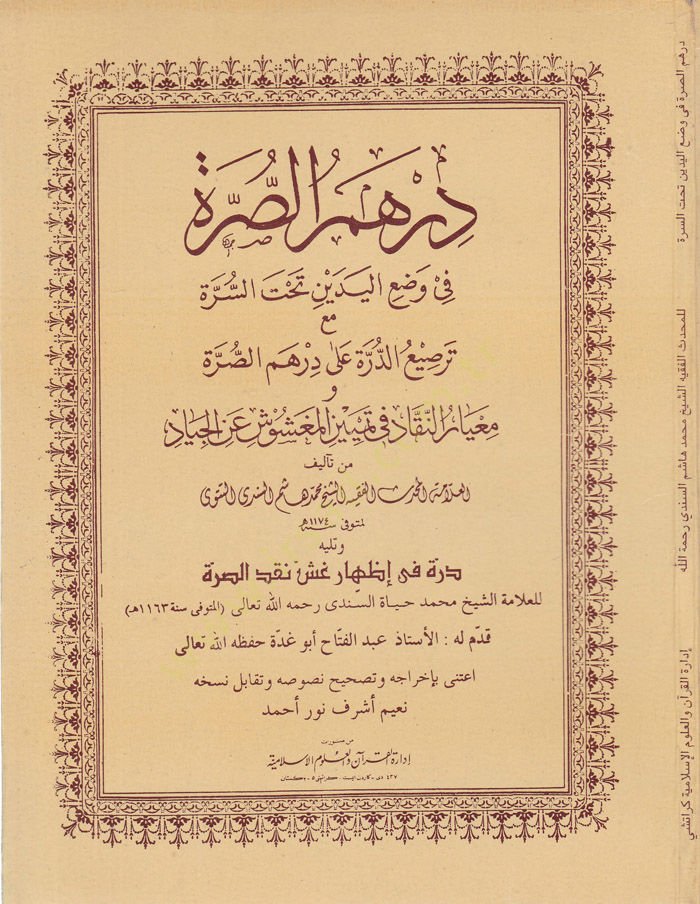 دِرْهَمُ الصُّرَّة
فِيْ وَضْعِ الْيَدَيْنِ تَحْتَ السُّرَّة
مع
تَرصِيْعُ الدُّرَّة عَلىٰ دِرْهَم الصُّرَّة
و
مِعْيَارُ النُّقَّاد فِيْ تَمْيِيْزِ الْمَغْشُوْشِ عَنِ الْجِيَاد
من تأليف
العلامة المحدث الفقيه الشيخ محمد هاشم السندى التتوى
المتوفى سنة ١١٧٤ھ
وتليه
درة فى إظهار غش نقد الصرة
للعلامة الشيخ محمد حياة السندى رحمه الله تعالى (المتوفى سنة ١١٦٣هـ)
قدّم له : الأستاذ عبد الفتاح أبو غدة حفظه الله تعالى
اعتنى بإخراجه وتصحيح نصوصه وتقابل نسخه
نعيم أشرف نور أحمد
من منشورات
إدارة القرآن والعلوم الاسلامية
٤٣٧ دى - كاردن ايست - كراتشى ٥ - باكستان
درهم الصرة في وضع اليدين تحت السرة
للمحدث الفقيه الشيخ محمد هاشم السندي رحمة الله
إدارة القرآن والعلوم الإسلامية كراتشي